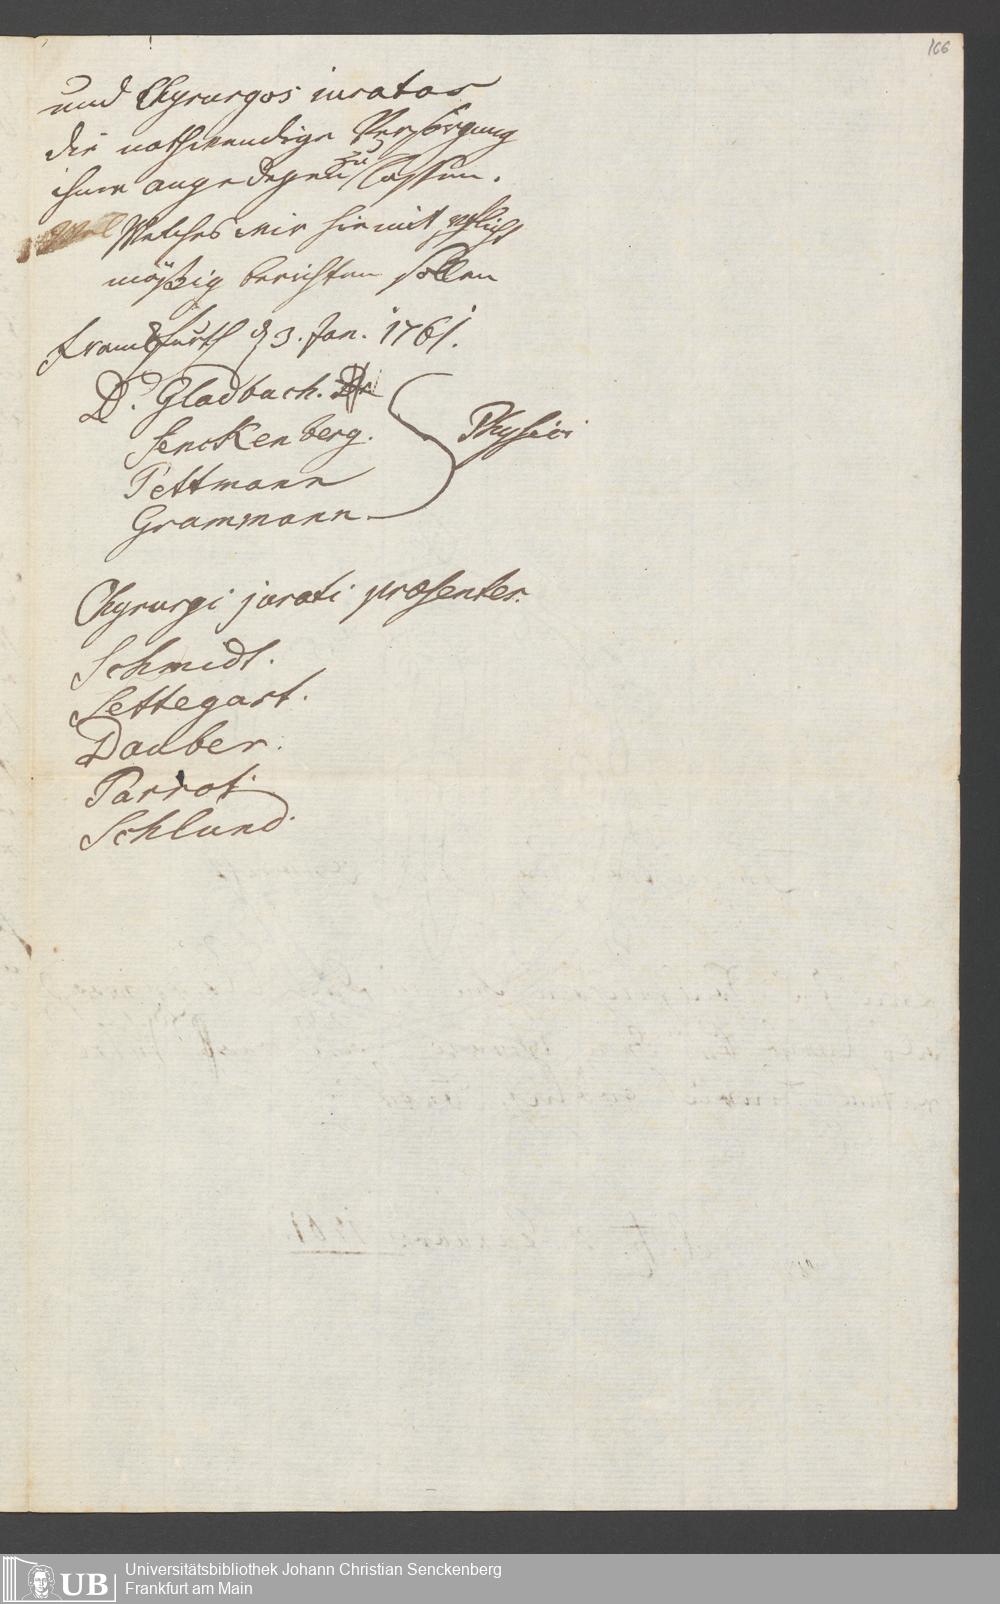 166
und Chyrurgos iuratos
die nothwendige Versorgung
ihme angedeyen zu lassen.
Welches wir hiemit pflicht
mäßig berichten sollen
Franckfurth d 3. Jan. 1761.
D. Gladbach.
Senckenberg. Physici
Pettmann
Grammann.
Chyrurgi jurati præsentes.
Schmidt.
Lettegart.
Dauber.
Parrot.
Schlund.
UB Universitätsbibliothek Johann Christian Senckenberg
Frankfurt am Main